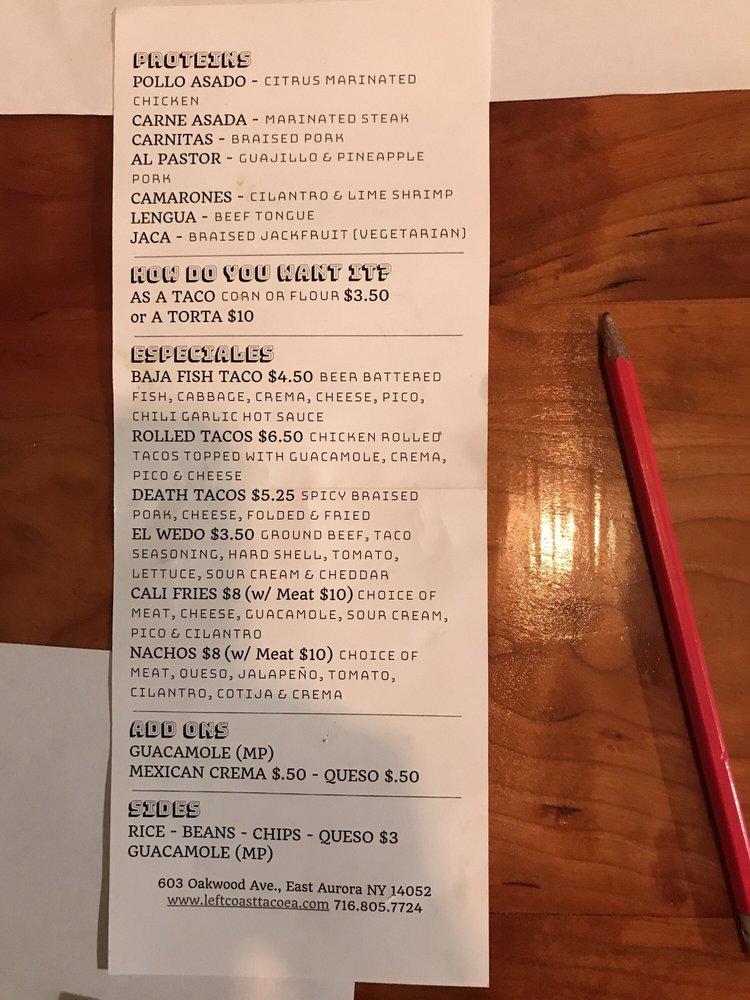 PROTEINS
POLLO ASADO - CITRUS MARINATED
CHICKEN
CARNE ASADA - MARINATED STEAK
CARNITAS - BRAISED PORK
AL PASTOR - GUAJILLO & PINEAPPLE
PORK
CAMARONES - CILANTRO & LIME SHRIMP
LENGUA - BEEF TONGUE
JACA - BRAISED JACKFRUIT (VEGETARIAN)
HOW DO YOU WANT IT?
AS A TACO CORN OR FLOUR $3.50
or A TORTA $10
ESPECIALES
BAJA FISH TACO $4.50 BEER BATTERED
FISH, CABBAGE, CREMA, CHEESE, PICO,
CHILI GARLIC HOT SAUCE
ROLLED TACOS $6.50 CHICKEN ROLLED
TACOS TOPPED WITH GUACAMOLE, CREMA,
PICO & CHEESE
DEATH TACOS $5.25 SPICY BRAISED
PORK, CHEESE, FOLDED & FRIED
EL WEDO $3.50 GROUND BEEF, TACO
SEASONING, HARD SHELL, TOMATO,
LETTUCE, SOUR CREAM & CHEDDAR
CALI FRIES $8 (w/ Meat $10) CHOICE OF
MEAT, CHEESE, GUACAMOLE, SOUR CREAM,
PICO & CILANTRO
NACHOS $8 (w/ Meat $10) CHOICE OF
MEAT, QUESO, JALAPEÑO, TOMATO,
CILANTRO, COTIJA & CREMA
ADD ONS
GUACAMOLE (MP)
MEXICAN CREMA $.50 - QUESO $.50
SIDES
RICE - BEANS - CHIPS - QUESO $3
GUACAMOLE (MP)
603 Oakwood Ave., East Aurora NY 14052
www.leftcoasttacoea.com 716.805.7724